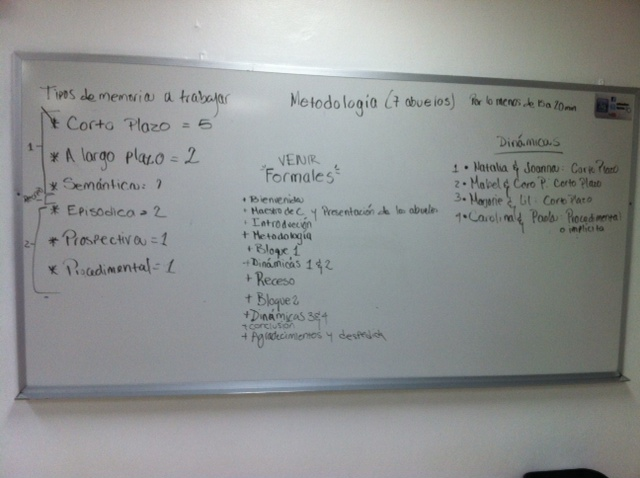 Tipos de memoria a trabajar
* Corto Plazo = 5
* A largo plazo = 2
* Semántica = ?
* Episodica = 2
* Prospectiva = 1
* Procedimental = 1
1
Receso
2
Metodología (7 abuelos) Por lo menos de 15 a 20 min
VENIR
"Formales"
• Bienvenida
+ Maestro de C. y Presentación de los abuelos
+ Introducción
+ Metodología
+ Bloque 1
+ Dinámicas 1 & 2
+ Receso
+ Bloque 2
+ Dinámicas 3 & 4
+ conclusión
+ Agradecimientos y despedida
Dinámicas
1 • Natalia & Joanna: Corto Plazo
2 • Mabel & Caro P. Corto Plazo
3 • Marjorie & Lil: Corto Plazo
4 • Carolina & Paola: Procedimental
o implícita